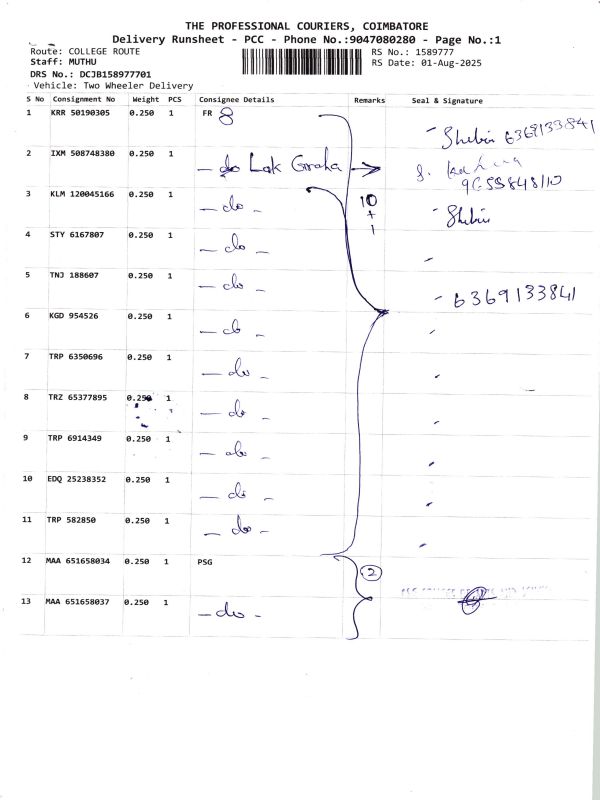 THE PROFESSIONAL COURIERS, COIMBATORE
Delivery Runsheet - PCC - Phone No.:9047080280 - Page No.:1
Route: COLLEGE ROUTE
RS No.: 1589777
Staff: MUTHU
RS Date: 01-Aug-2025
DRS No.: DCJB158977701
Vehicle: Two Wheeler Delivery
S No Consignment No Weight PCS Consignee Details Remarks Seal & Signature
1 KRR 50190305 0.250 1 FR 8
- Shebin 6369133841
2 IXM 508748380 0.250 1 - do Lak Graha
3 KLM 120045166 0.250 1 - do - 10 + 1 - Shebin
4 STY 6167807 0.250 1 - do -
5 TNJ 188607 0.250 1 - do - - 6369133841
6 KGD 954526 0.250 1 - do -
7 TRP 6350696 0.250 1 - do -
8 TRZ 65377895 0.250 1 - do -
9 TRP 6914349 0.250 1 - do -
10 EDQ 25238352 0.250 1 - do -
11 TRP 582850 0.250 1 - do -
12 MAA 651658034 0.250 1 PSG 2
13 MAA 651658037 0.250 1 - do -